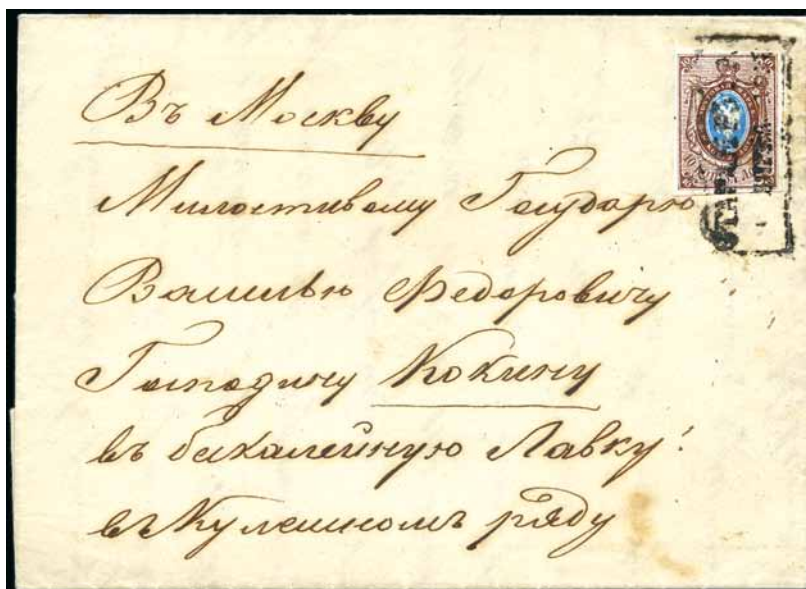 Въ Москву
Милостивому Государю
Василью Федоровичу
Господину Кокину
въ бакалейную Лавку:
въ
ряду